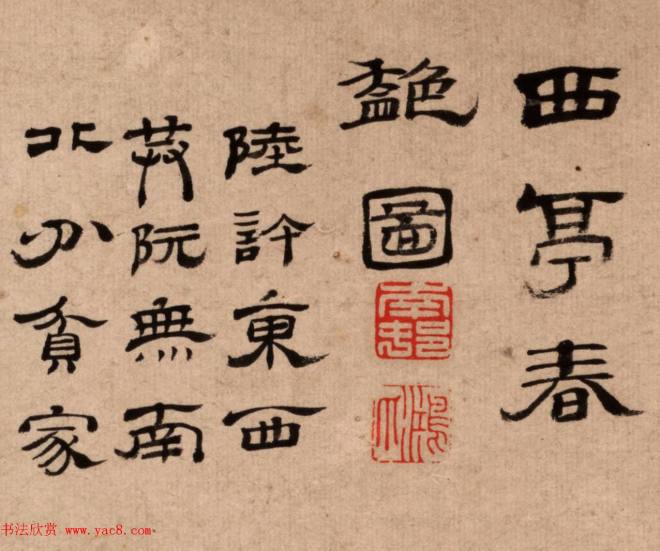 西亭春
艷圖
陸許東西
阮無南
北分貧家
书法欣赏 www.yac8.com